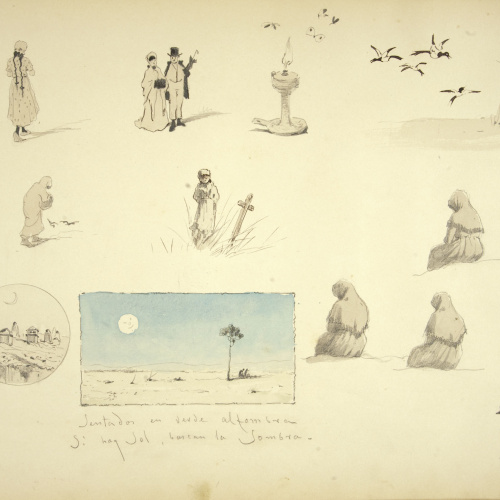 Sentados en verde alfombra
Si hay Sol, buscan la Sombra.